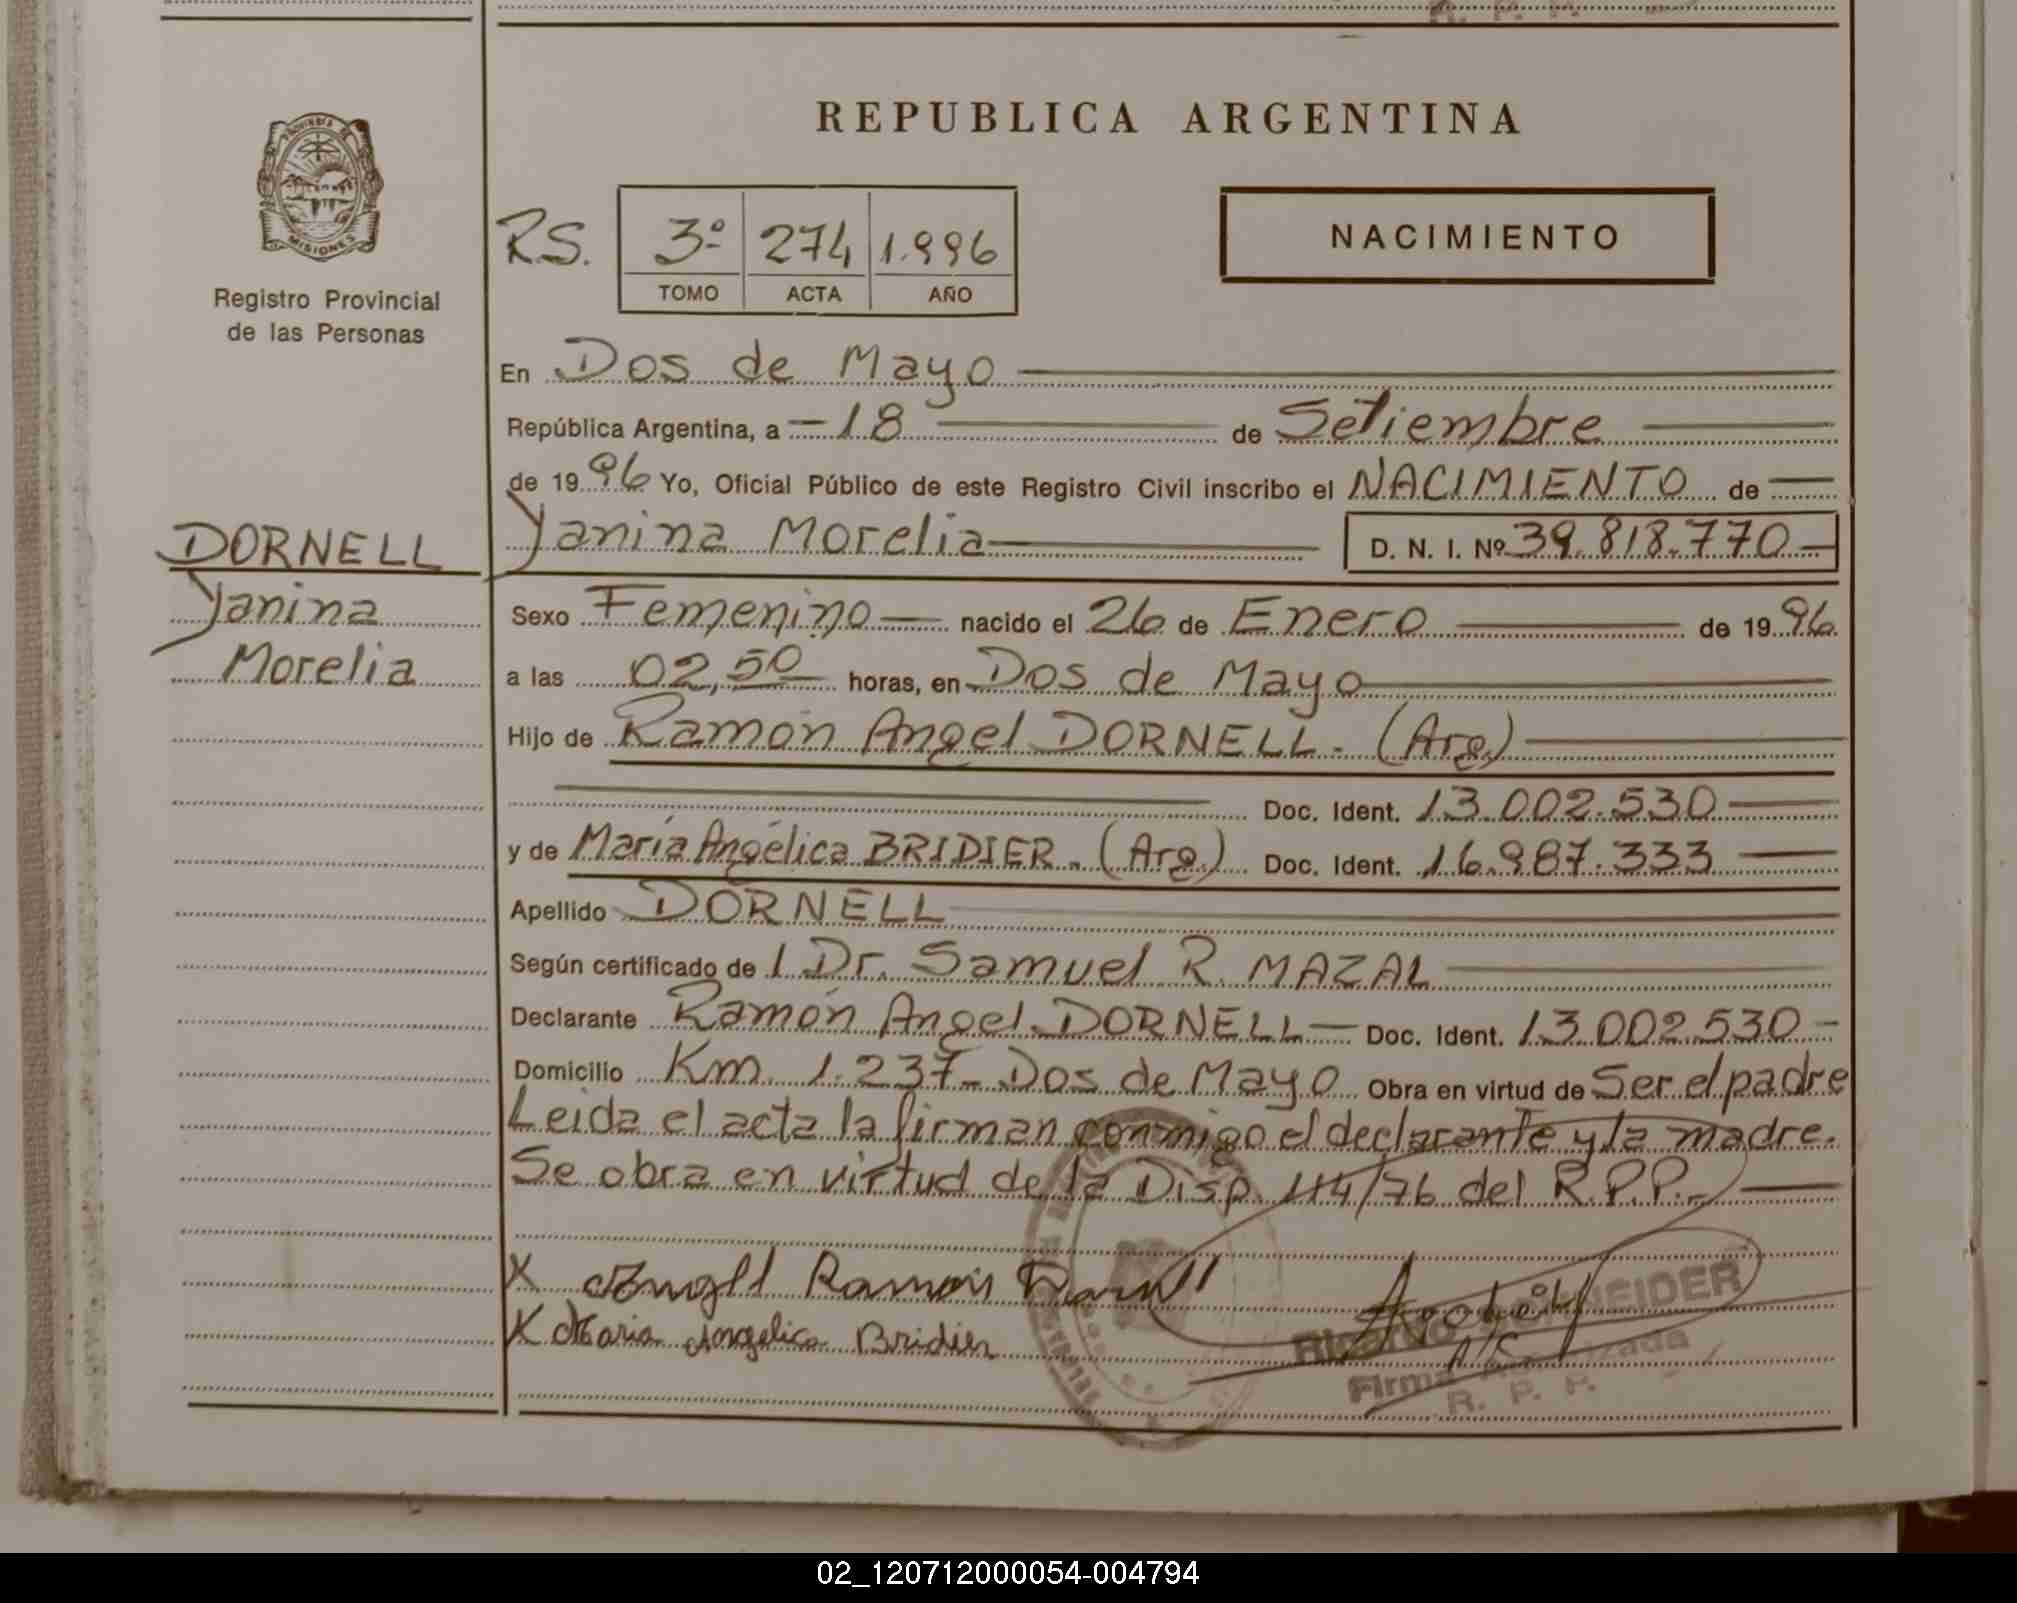 R. P. P.
REPUBLICA ARGENTINA
PROVINCIA DE
MISIONES
Registro Provincial
de las Personas
RS. 3º 274 1.996
TOMO ACTA AÑO
NACIMIENTO
En Dos de Mayo
República Argentina, a 18 de Setiembre
de 1996 Yo, Oficial Público de este Registro Civil inscribo el NACIMIENTO de
Yanina Morelia D. N. I. Nº 39.818.770
DORNELL
Yanina
Morelia
Sexo Femenino nacido el 26 de Enero de 1996
a las 02,50 horas, en Dos de Mayo
Hijo de Ramón Angel DORNELL. (Arg)
Doc. Ident. 13.002.530
y de María Angélica BRIDIER. (Arg.) Doc. Ident. 16.987.333
Apellido DORNELL
Según certificado de l Dr. Samuel R. MAZAL
Declarante Ramón Angel DORNELL Doc. Ident. 13.002.530
Domicilio Km. 1.237 - Dos de Mayo Obra en virtud de Ser el padre
Leida el acta la firman conmigo el declarante y la madre.
Se obra en virtud de la Disp. 44/76 del R.P.P.
X Ramon
X Maria Angelica Bridier
Ricardo SCHNEIDER
Firma Autorizada
R. P. P.
02_120712000054-004794